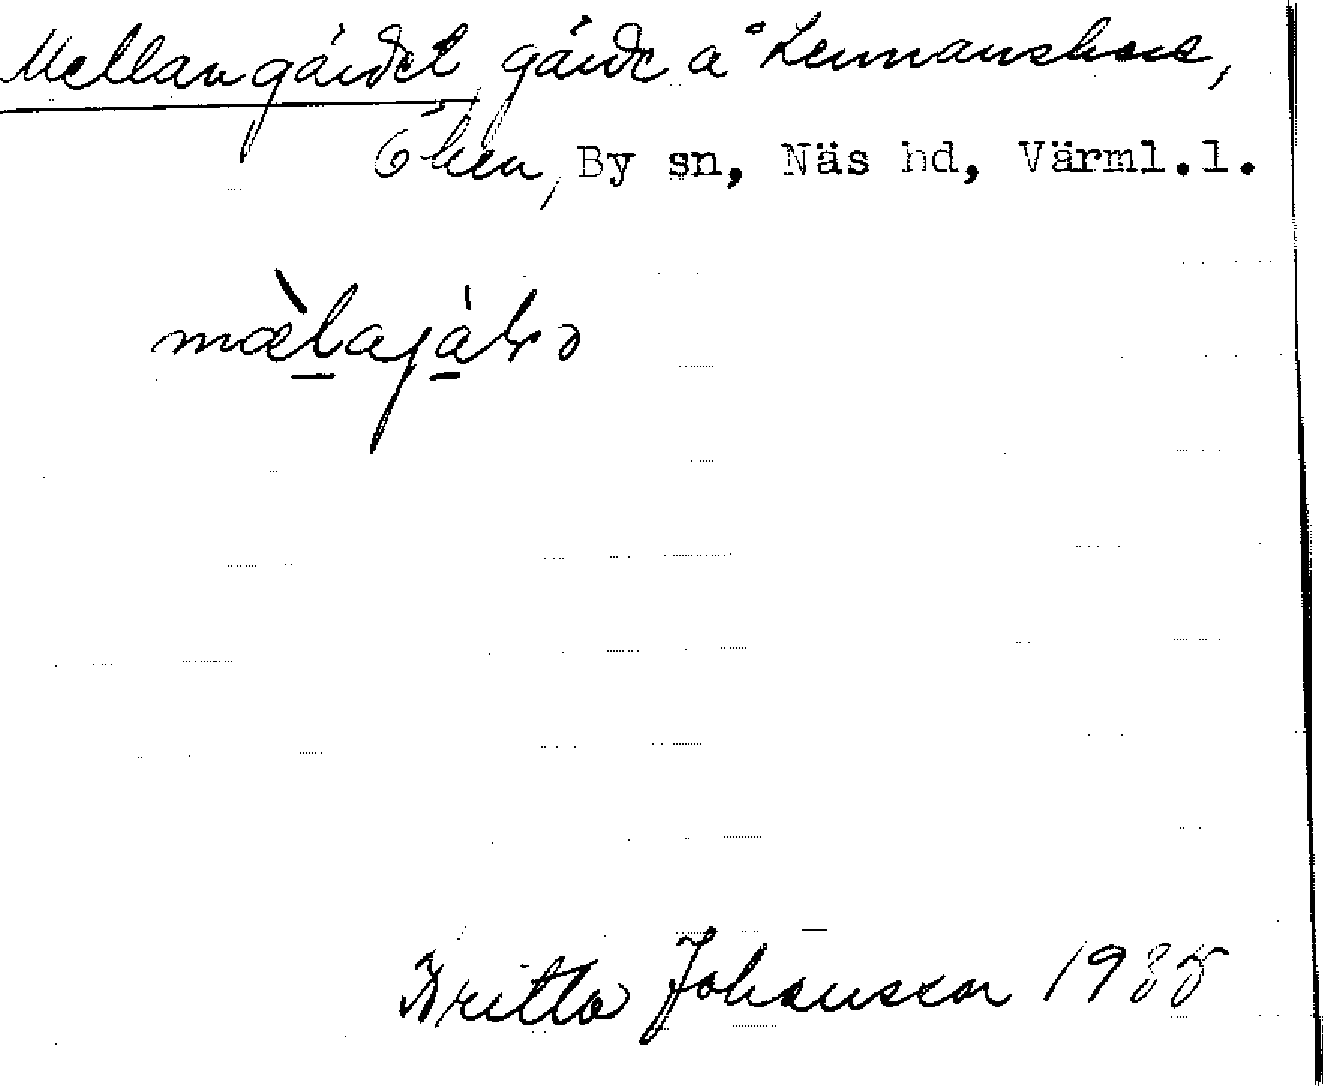 Mellangärdet, gärde å Lennanshus,
Öken, By sn, Näs hd, Värml.l.
Britta Johansson 1935